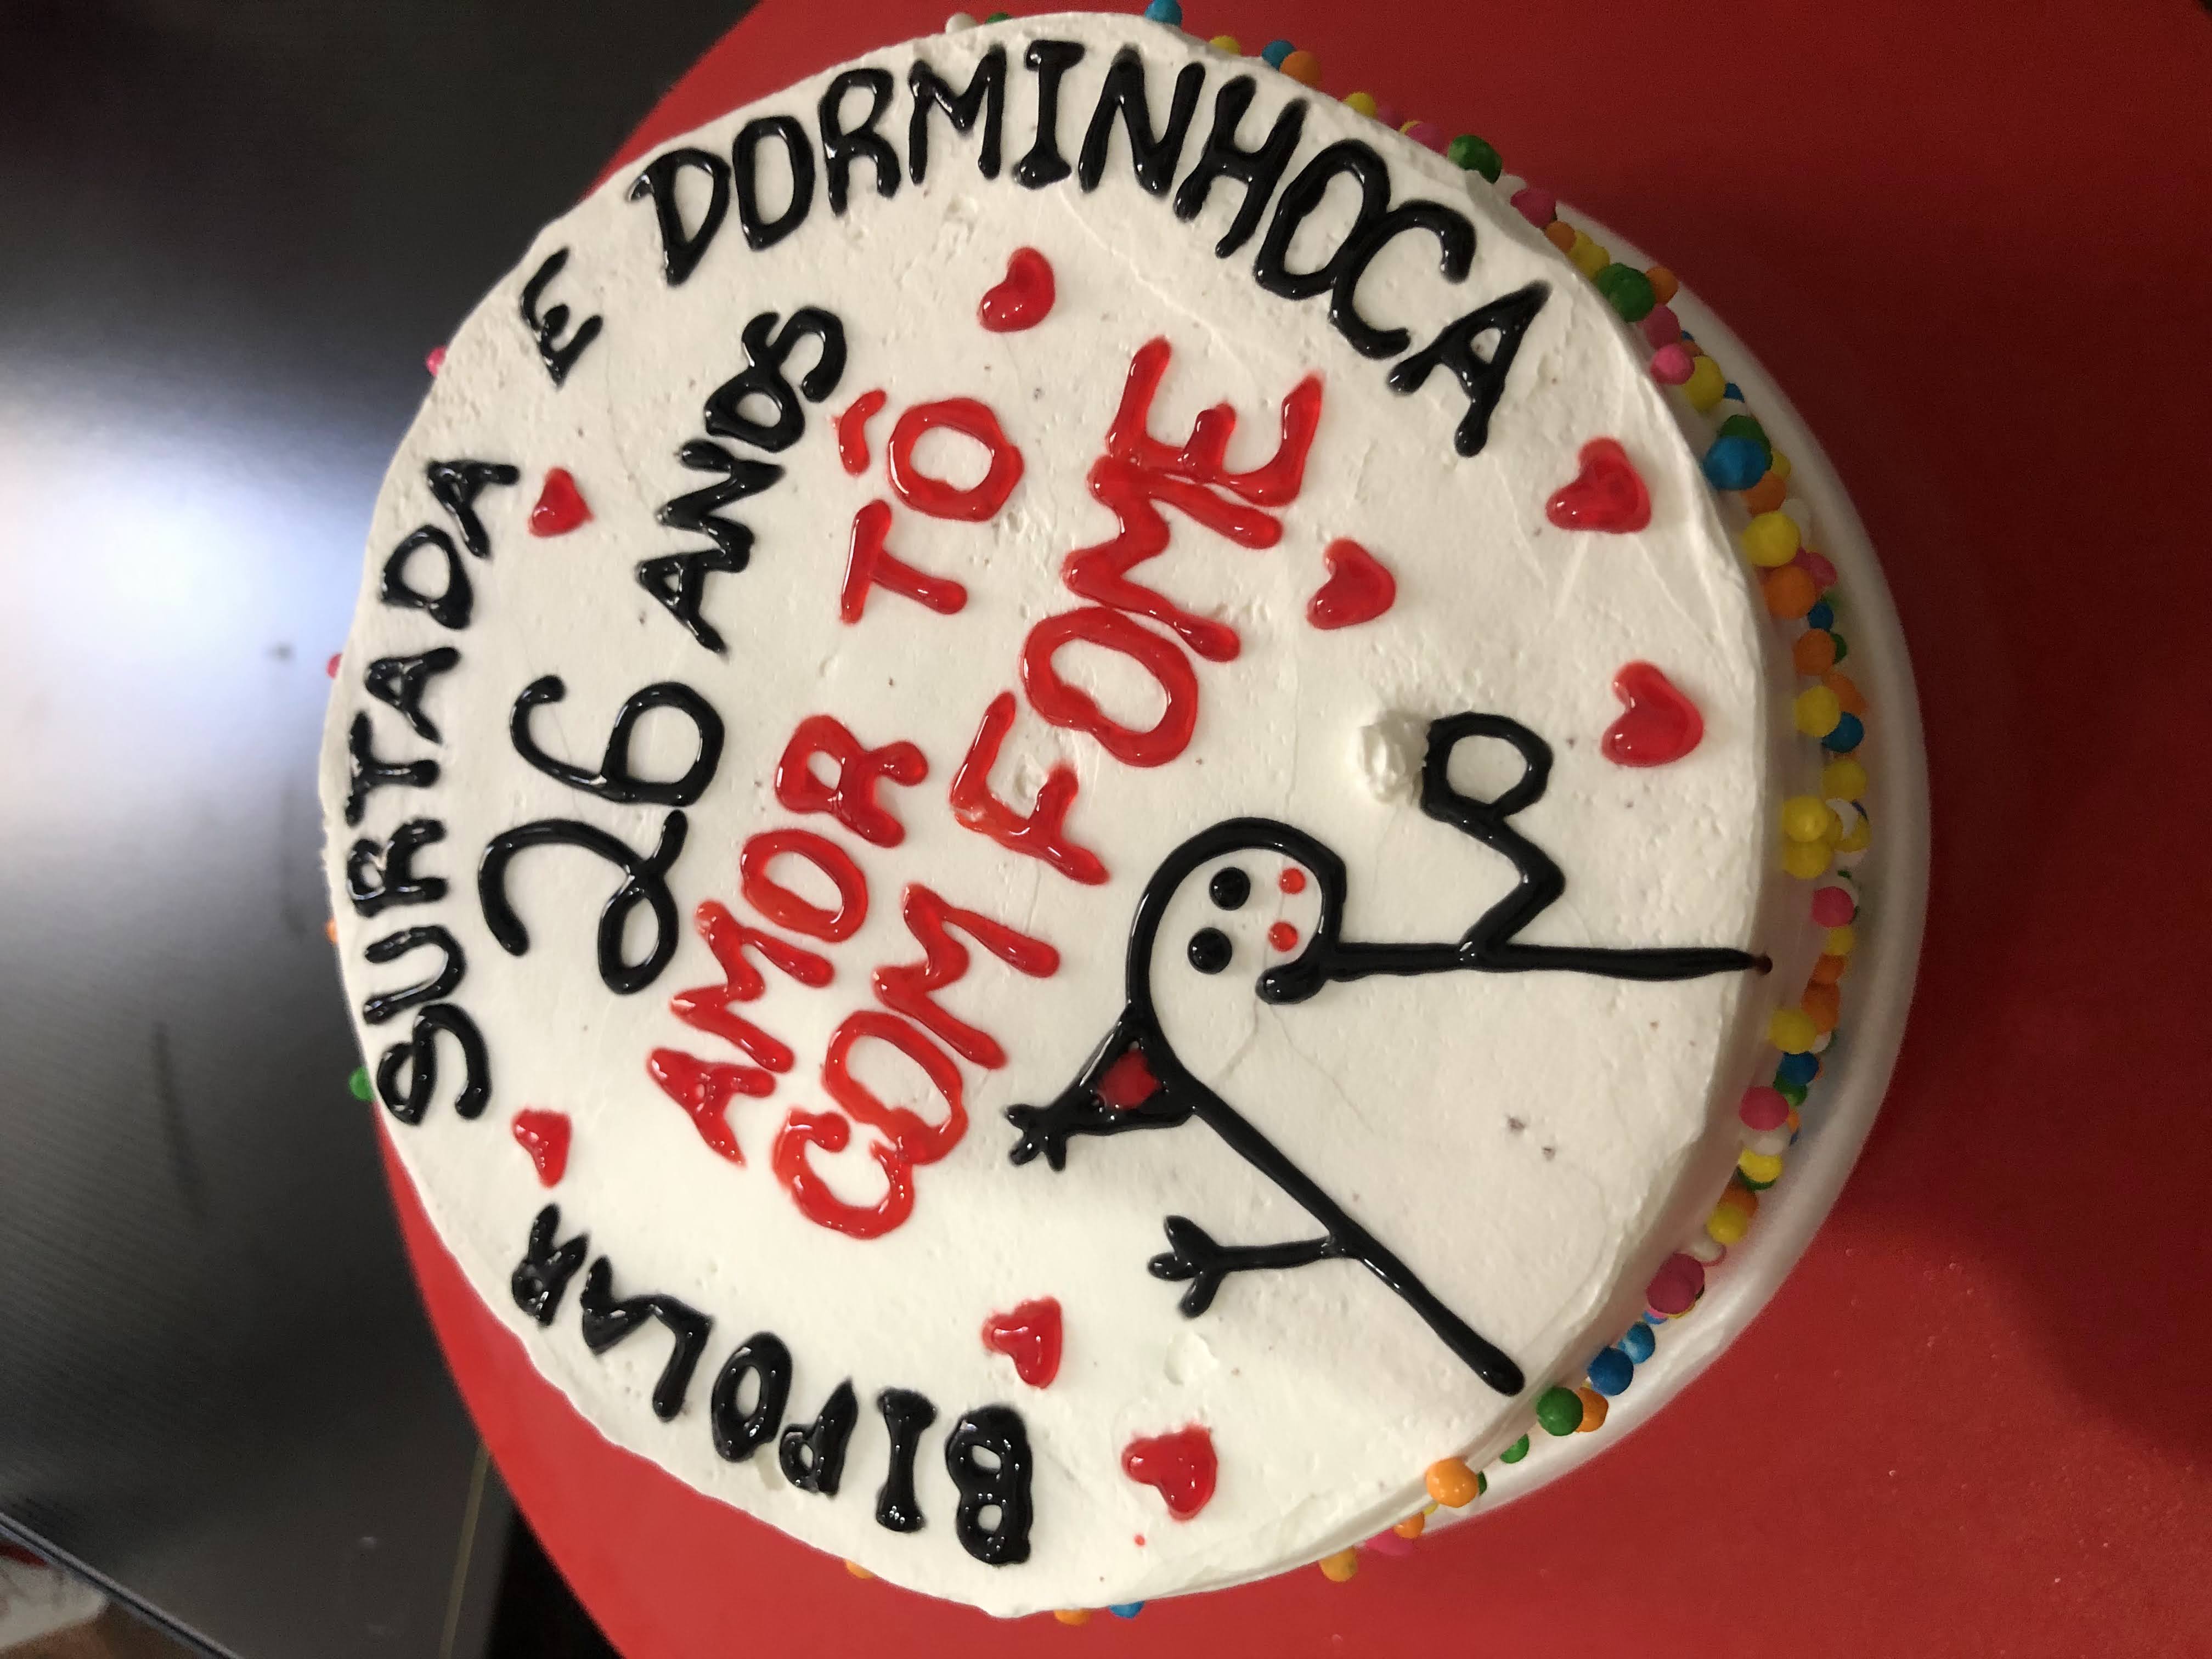 BIPOLAR SURTADA E DORMINHOCA
26 ANOS
AMOR TÔ
COM FOME